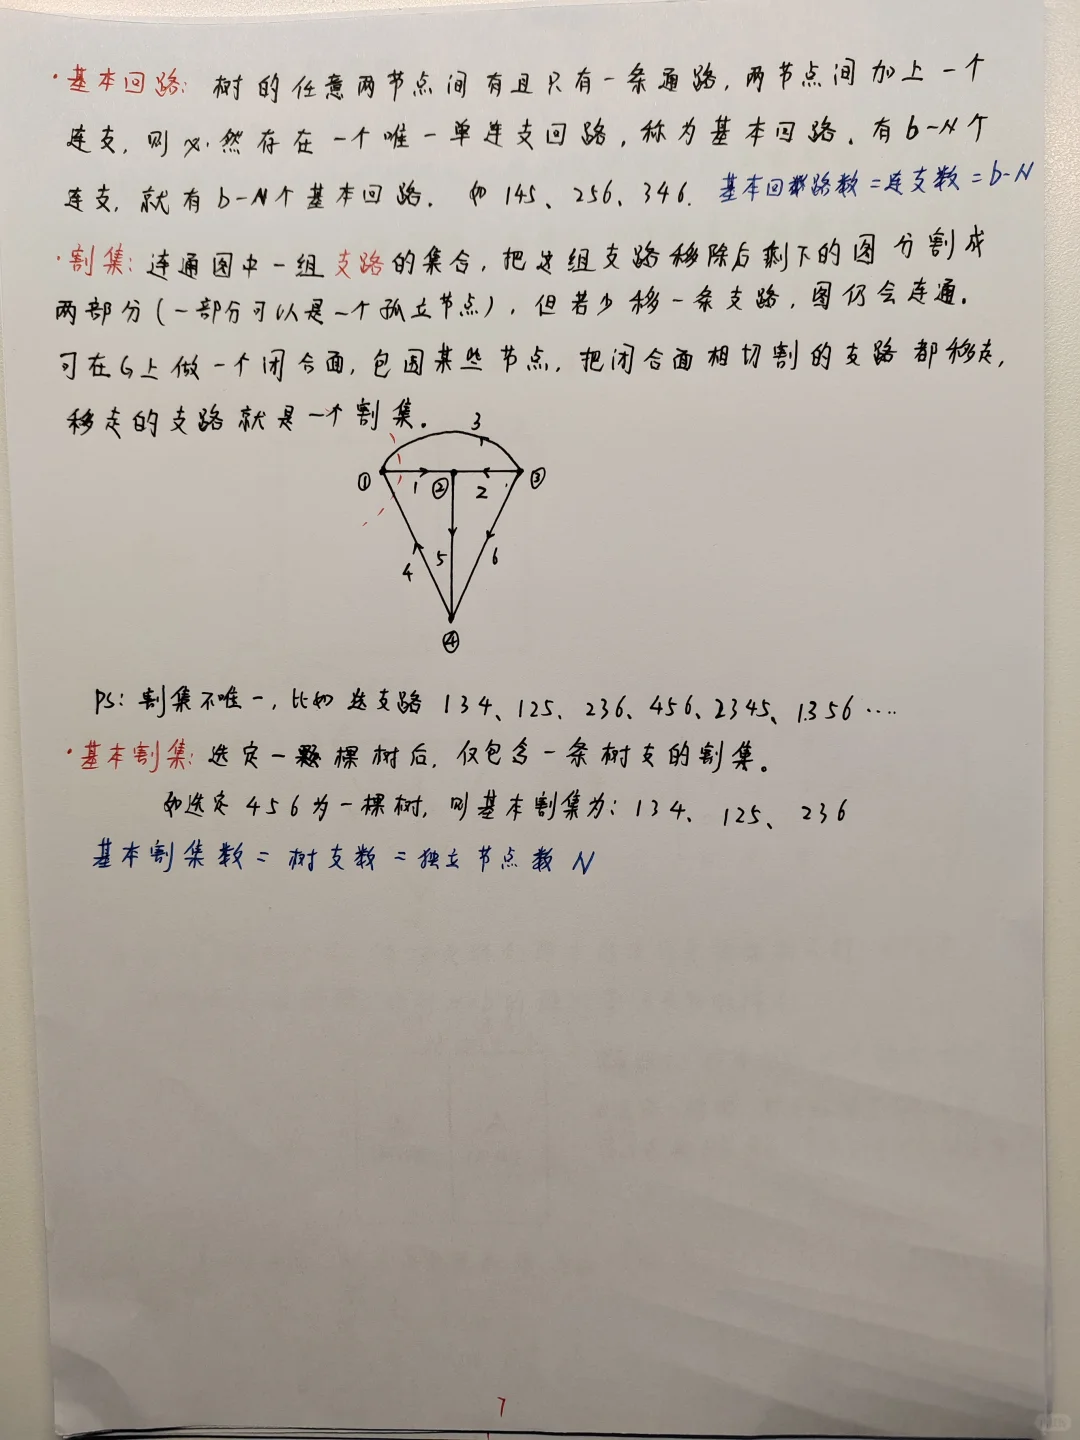 ·基本回路: 树的任意两节点间有且只有一条通路, 两节点间加上一个
连支, 则必然存在一个唯一单连支回路, 称为基本回路. 有b-N个
连支, 就有b-N个基本回路. 如145、256、346. 基本回路数=连支数=b-N
·割集: 连通图中一组支路的集合, 把这组支路移除后剩下的图分割成
两部分(一部分可以是一个孤立节点), 但若少移一条支路, 图仍会连通.
可在G上做一个闭合面, 包围某些节点, 把闭合面相切割的支路都移走,
移走的支路就是一个割集.
3
① 1 ② 2 ③
4 5 6
④
PS: 割集不唯一, 比如选支路134、125、236、456、2345、1356····
·基本割集: 选定一棵树后, 仅包含一条树支的割集。
如选定456为一棵树, 则基本割集为: 134、125、236
基本割集数=树支数=独立节点数N
7